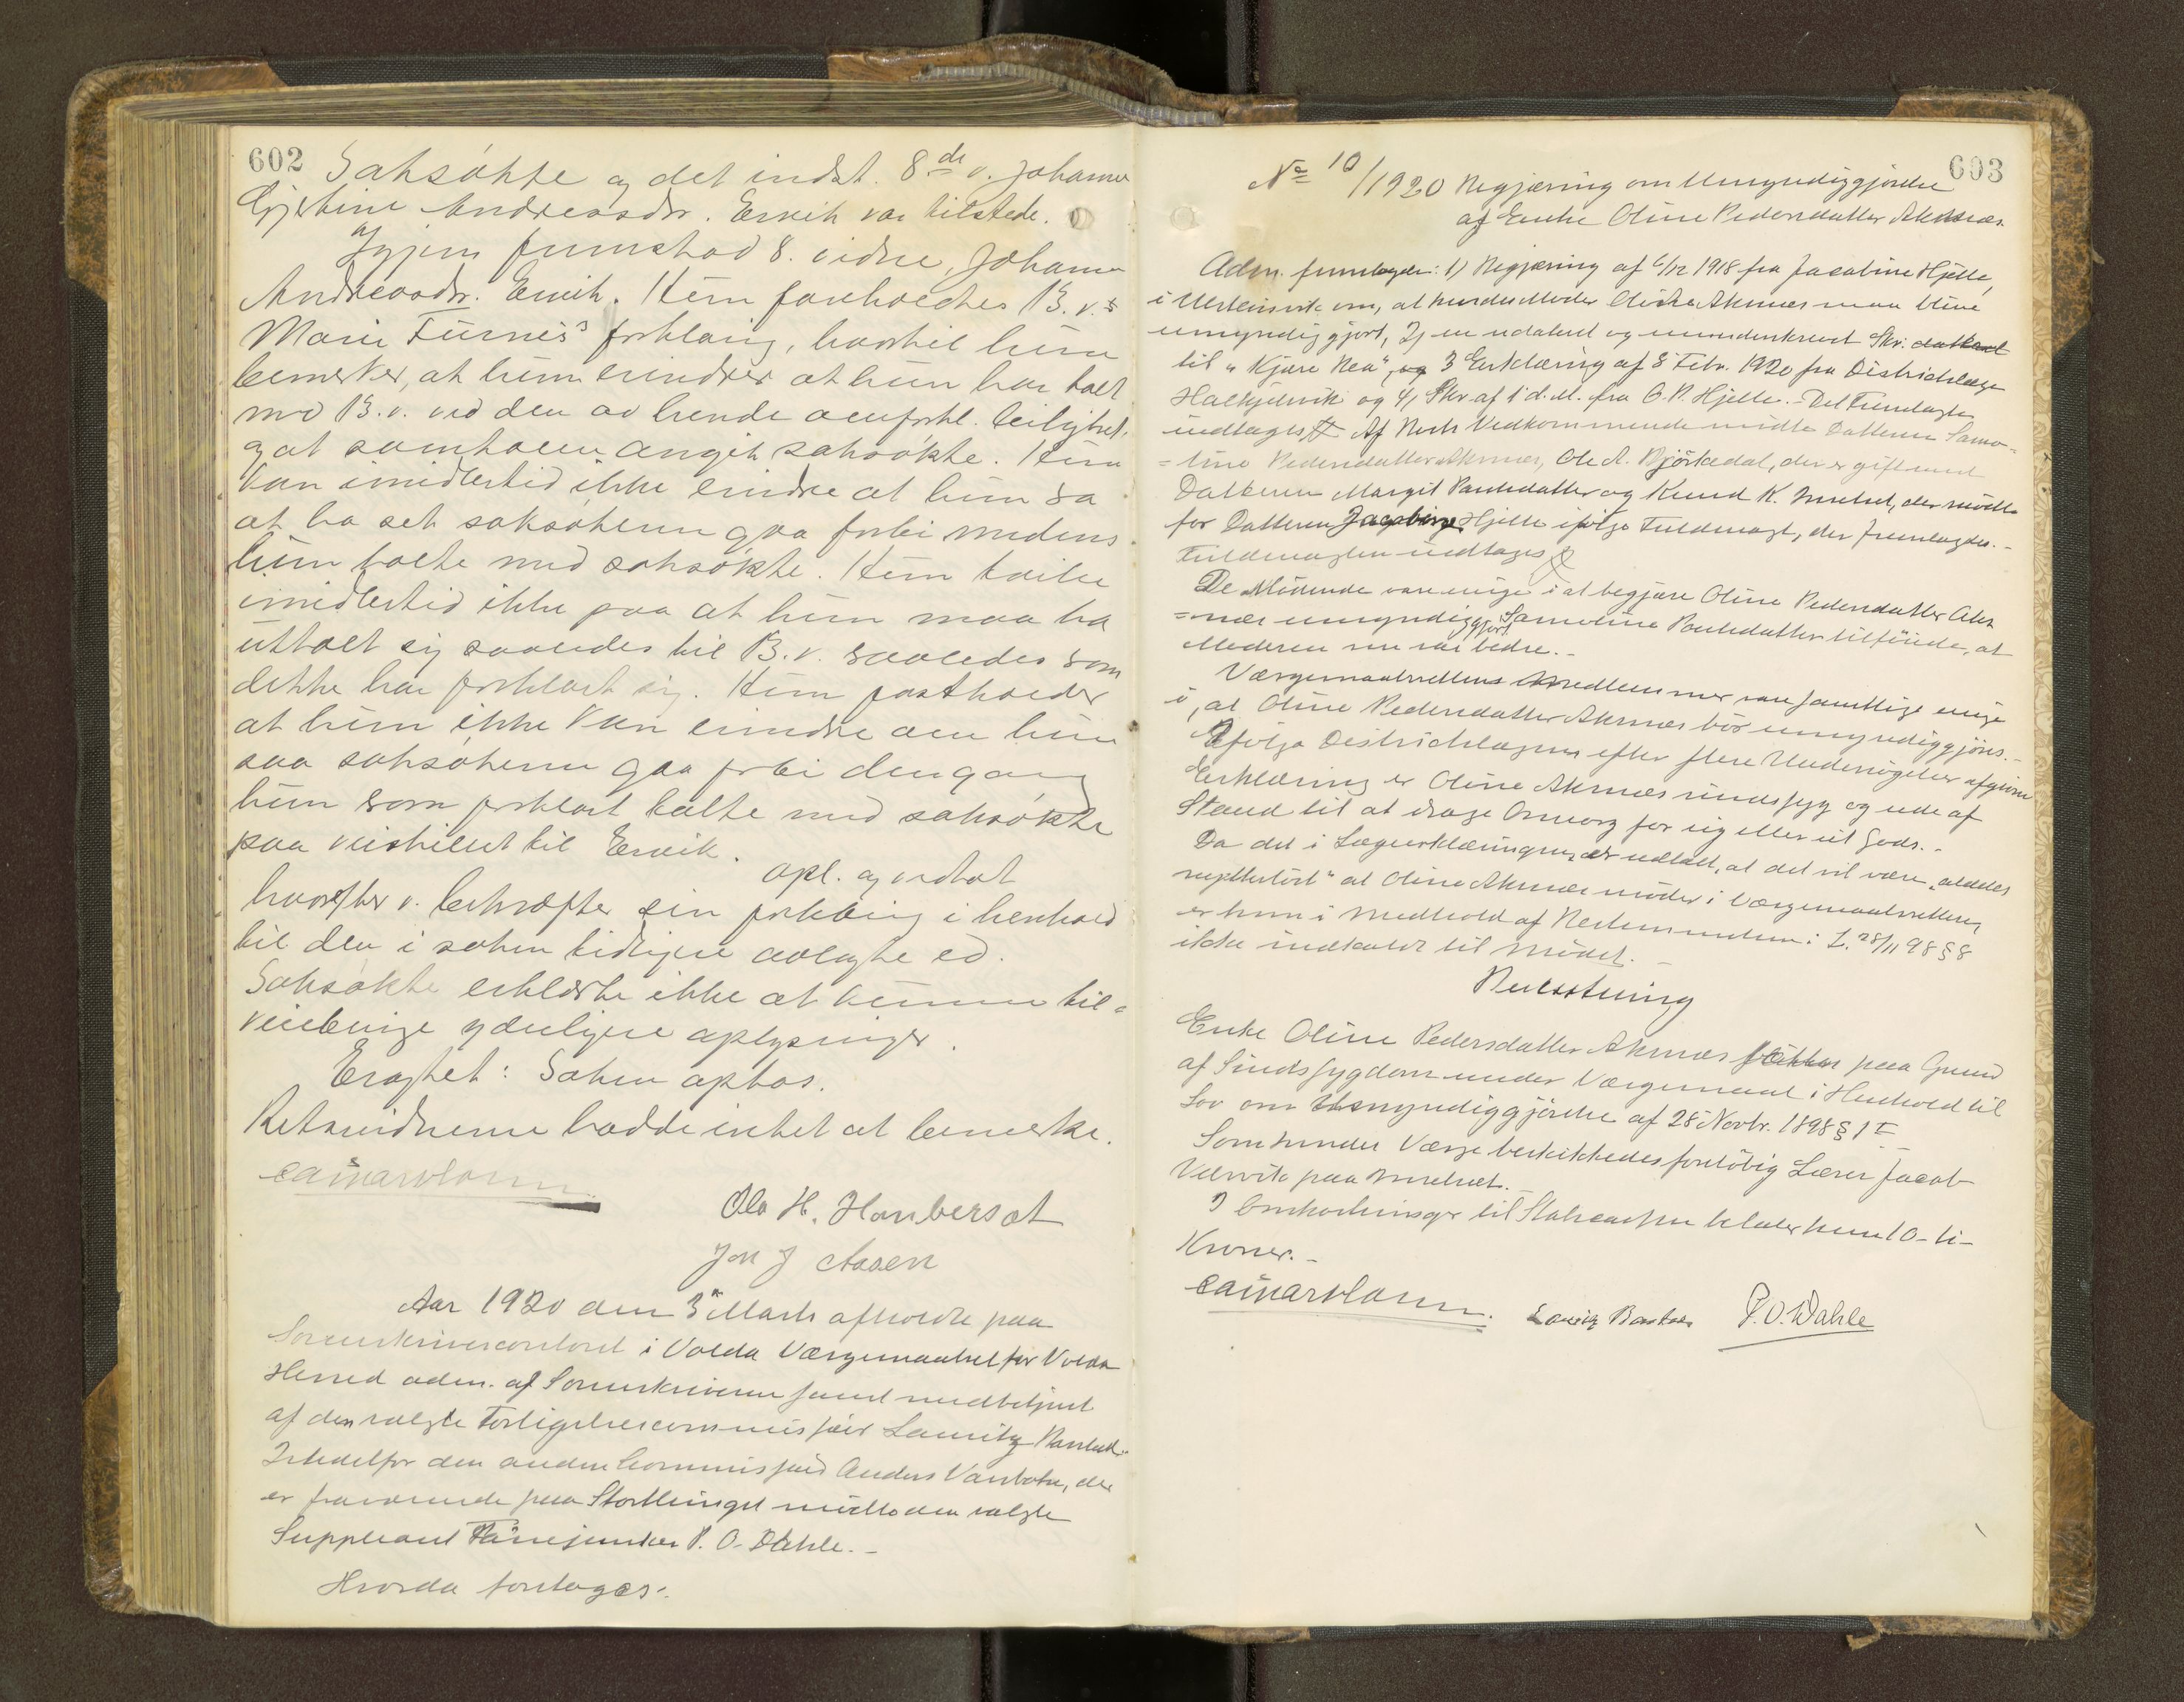 602 Saksøkte og det indst. 8de v. Johanna
Gjertine Andreasdr. Ervik var tilstede.
Igjen fremstod 8. vidne, Johanna
Andreasdr. Ervik. Hun foreholdtes B. v.s
Marie Furnes's forklaring, hvortil hun
bemerker, at hun erindrer at hun har talt
med B. v. ved den av hende omforkl. leilighet,
og at samtalen angik saksøkte. Hun
kan imidlertid ikke erindre at hun sa
at ha set saksøkeren gaa forbi medens
hun talte med saksøkte. Hun tviler
imidlertid ikke paa at hun maa ha
uttalt sig saaledes til B. v. saaledes som
dette har forklart sig. Hun fastholder
at hun ikke kan erindre om hun
saa saksøkeren gaa forbi dengang
hun som forklart talte med saksøkte
paa veiskillet til Ervik.
Opl. og vedtat
hvorefter v. bekræfter sin forklaring i henhold
til den i saken tidligere avlagte ed.
Saksøkte erklærte ikke at kunne til-
veiebringe yderligere oplysninger.
Eragtet: Saken optas.
Retsvidnerne hadde intet at bemerke.
Ola H. Haubersat
Jon J Aasen
Aar 1920 den 3 Marts afholdt paa
Sorenskrivercontoret i Volda Værgemaalsret for Volda
Herred adm. af Sorenskriveren samt medbetjent
af den valgte Forligelsescommissær Lauritz
Istedetfor den anden Commissær Anders Vassbotn, der
er fraværende paa Storthinget mødte den valgte
Suppleant P. O. Dahle.-
Hvorda foretages:
603
No 10/1920 Begjæring om Umyndiggjørelse
af Enke Oline Pedersdatter Aksnes.
Adm. fremlagde: 1) Begjæring af 6/12 1918 fra Jacobine Hjelle,
i om, at hendes Moder Oline Aksnes maa blive
umyndiggjort, 2) en udateret og Skr.
til "Kjære Rea", og 3 Erklæring af 8 Febr. 1920 fra Distriktslæge
Halkjelsvik og 4) Skr af 1 d. M. fra O. P. Hjelle.- Det Fremlagte
indtages. Af Rette Vedkommende mødte Datteren Samo-
=line Pedersdatter Aksnes, Ole A. Bjørkedal, der er gift med
Datteren Margit Paulsdatter og Knud K. Mulset, der mødte
for Datteren Jacobine Hjelle ifølge Fuldmagt, der fremlagdes.-
Fuldmagten indtages
De Mødende vare enige i at begjære Oline Pedersdatter Aks
=nes umyndiggjort. Samoline Paulsdatter tilføiede, at
Moderen nu var bedre.-
Værgemaalsrettens Medlemmer vare samtlige enige
i, at Oline Pedersdatter Aksnes bør umyndiggjøres.-
Ifølge Distriktslægens efter flere Undersøgelser afgivne
Erklæring er Oline Aksnes sindssyg og ude af
Stand til at drage Omsorg for sig eller sit Gods.-
Da det i Lægeerklæringen er udtalt, at det vil være "aldeles
nytteløst" at Oline Aksnes møder i Værgemaalsretten,
er hun i Medhold af Bestemmelsen i L. 28/11 98 § 8
ikke indkaldt til Mødet.-
Beslutning
Enke Oline Pedersdatter Aksnes sættes paa Grund
af Sindssygdom under Værgemaal i Henhold til
Lov om Umyndiggjørelse af 28 Novbr. 1898 § 1
Som hendes Værge beskikkedes foreløbig Lærer Jacob
paa Mulset.-
I Omkostninger til Statscassen betaler hun 10- ti-
Kroner.-
P. O. Dahle